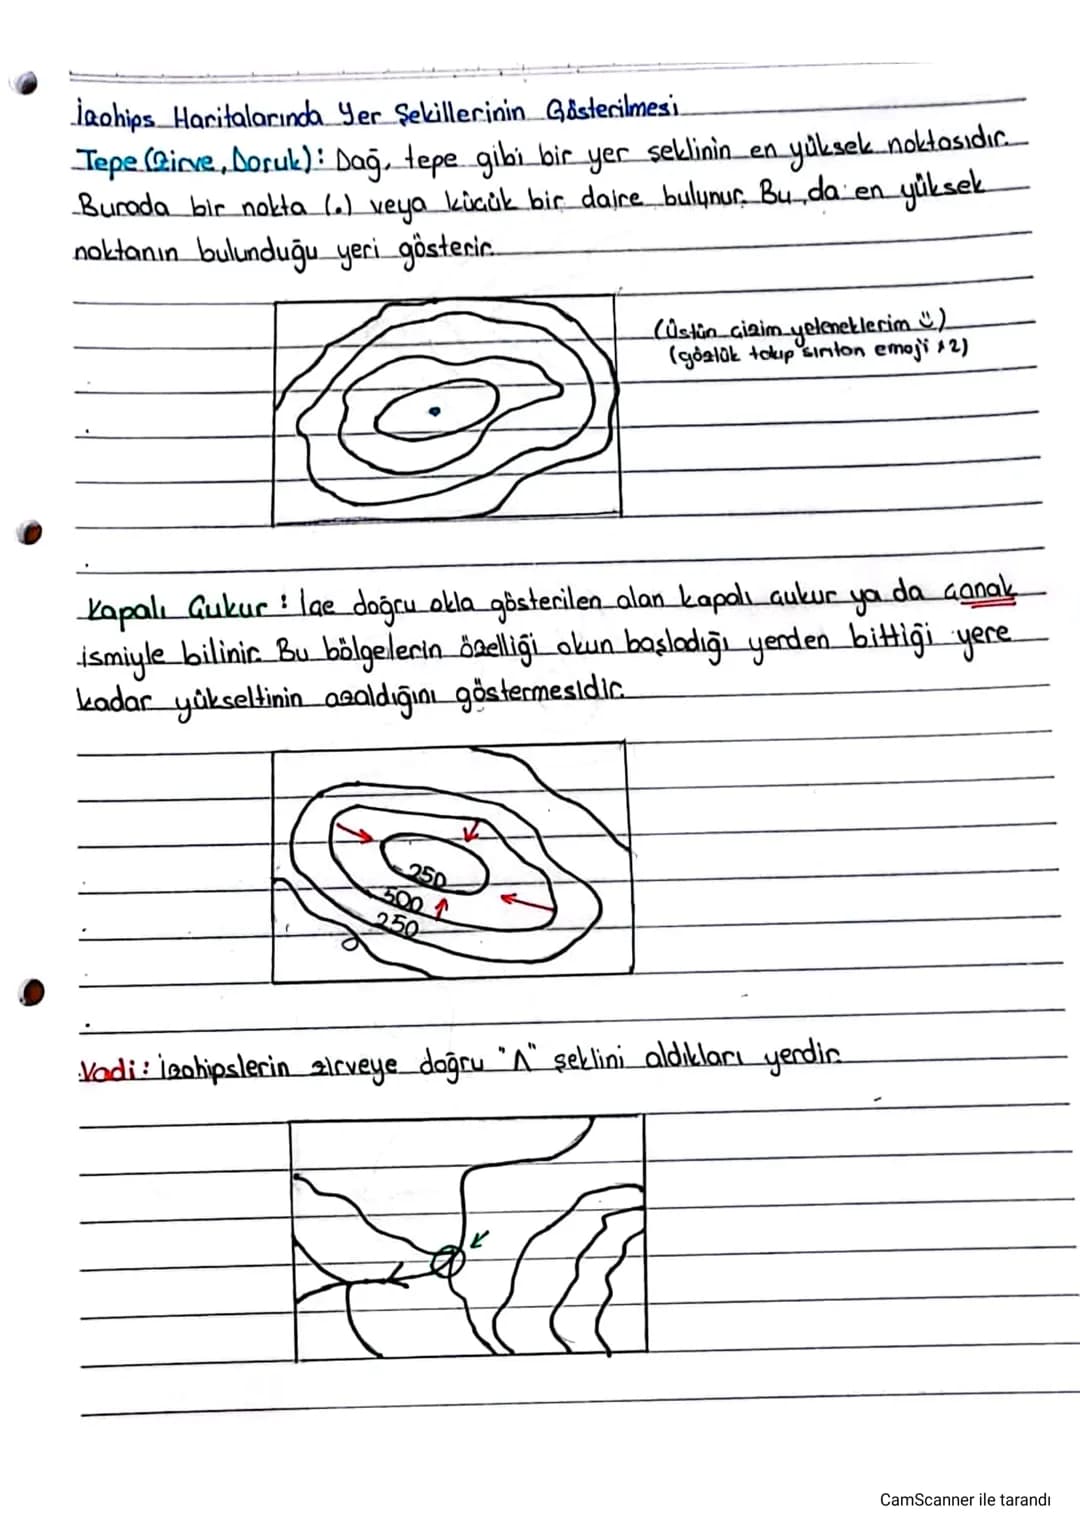 İzohips Haritalarında Yer Şekillerinin Gösterilmesi
Tepe (Zirve, Doruk): Dağ, tepe gibi bir yer şeklinin en yüksek noktasıdır.
Burada bir nokta (.) veya küçük bir daire bulunur. Bu da en yüksek
noktanın bulunduğu yeri gösterir.
(üstün çizim yeteneklerim ü)
(gözlük takıp sırıtan emoji x2)
Kapalı Çukur: İçe doğru okla gösterilen alan kapalı çukur ya da çanak
ismiyle bilinir. Bu bölgelerin özelliği okun başladığı yerden bittiği yere
kadar yükseltinin azaldığını göstermesidir.
250
500
250
Vadi: İzohipslerin zirveye doğru "Λ" şeklini aldıkları yerdir.
CamScanner ile tarandı